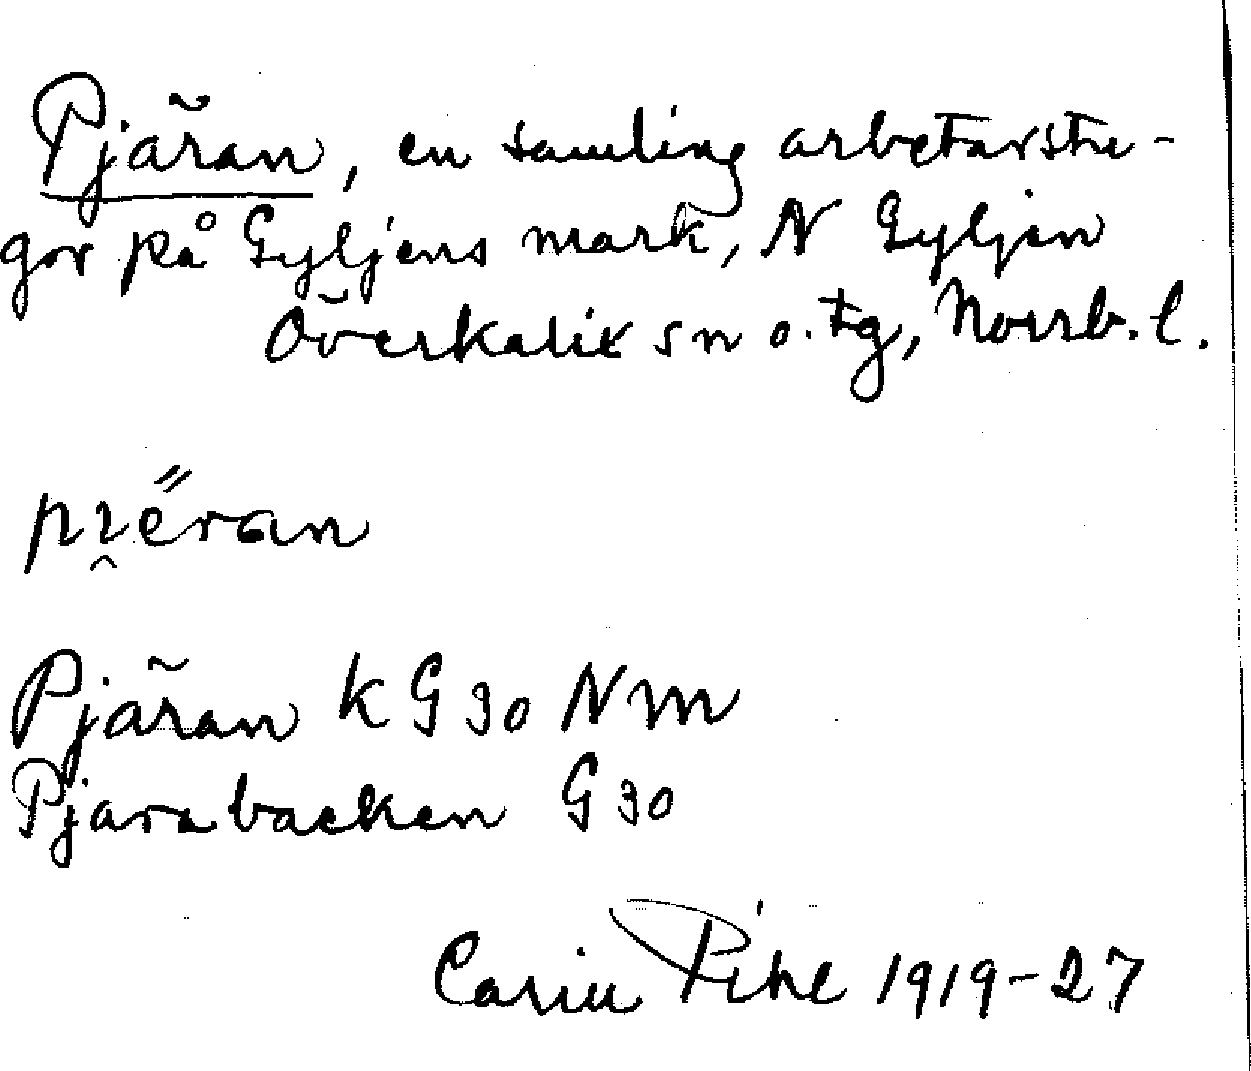 Pjäran, en samling arbetarstu-
gor på Gyljens mark, N Gyljen
Överkalix sn o. tg, Norrb. l.
pi̯e̋ran
Pjäran k G 30 NM
Pjarabacken G 30
Carin Pihl 1919-27